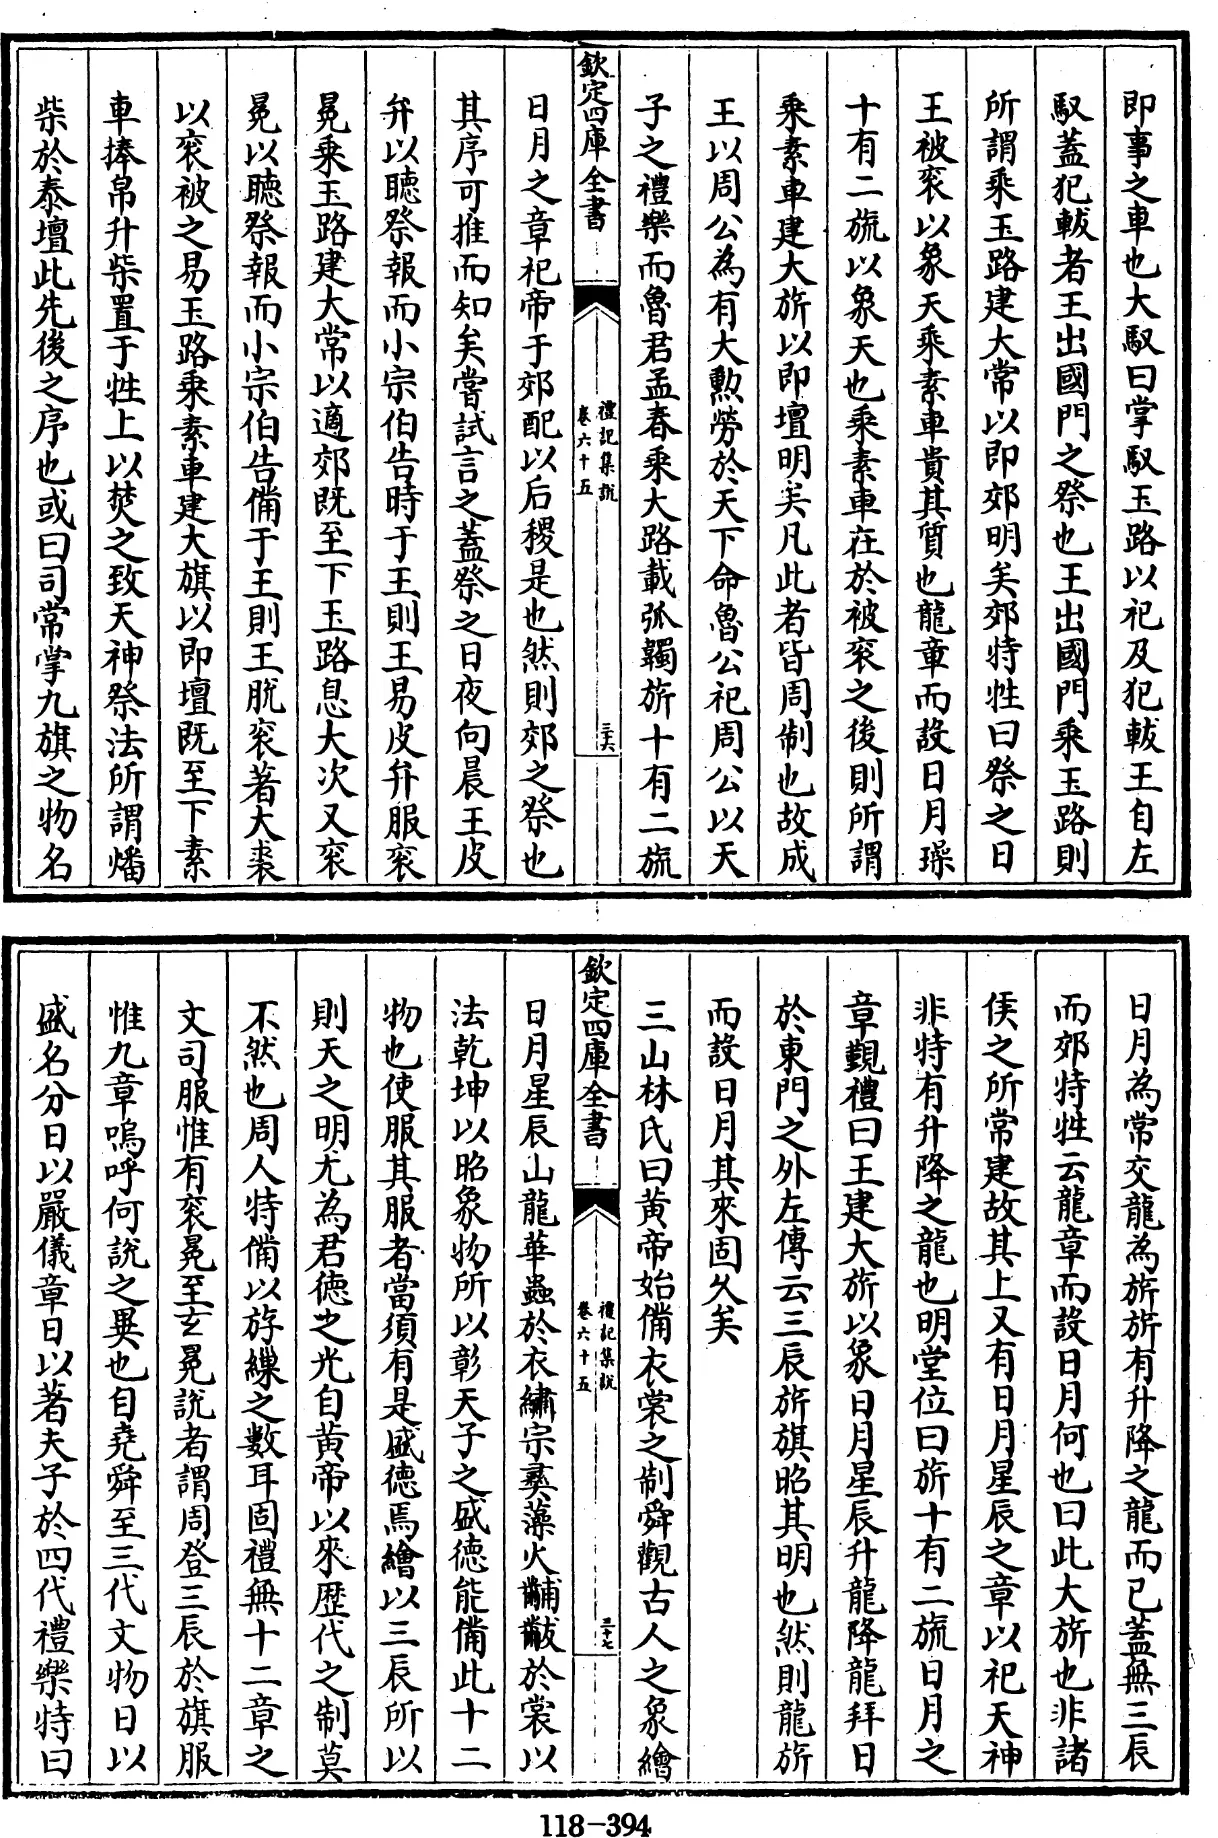 即事之車也大馭曰掌馭玉路以祀及犯軷王自左
馭蓋犯軷者王出國門之祭也王出國門乘玉路則
所謂乘玉路建大常以即郊明矣郊特牲曰祭之日
王被衮以象天乘素車貴其質也龍章而設日月璪
十有二旒以象天也乘素車在於被衮之後則所謂
乘素車建大旂以即壇明矣凡此者皆周制也故成
王以周公為有大勲勞於天下命魯公祀周公以天
子之禮樂而魯君孟春乘大路載弧韣旂十有二旒
欽定四庫全書
禮記集說
卷六十五
三十六
日月之章祀帝于郊配以后稷是也然則郊之祭也
其序可推而知矣嘗試言之蓋祭之日夜向晨王皮
弁以聽祭報而小宗伯告時于王則王易皮弁服衮
冕乘玉路建大常以適郊既至下玉路息大次又衮
冕以聽祭報而小宗伯告備于王則王脫衮著大裘
以衮被之易玉路乘素車建大旗以即壇既至下素
車捧帛升柴置于牲上以焚之致天神祭法所謂燔
柴於泰壇此先後之序也或曰司常掌九旗之物名
日月為常交龍為旂旂有升降之龍而已蓋無三辰
而郊特牲云龍章而設日月何也曰此大旂也非諸
侯之所常建故其上又有日月星辰之章以祀天神
非特有升降之龍也明堂位曰旂十有二旒日月之
章覲禮曰王建大旂以象日月星辰升龍降龍拜日
於東門之外左傳云三辰旂旗昭其明也然則龍旂
而設日月其來固久矣
三山林氏曰黃帝始備衣裳之制舜觀古人之象繪
欽定四庫全書
禮記集說
卷六十五
三十七
日月星辰山龍華蟲於衣繡宗彝藻火黼黻於裳以
法乾坤以昭象物所以彰天子之盛德能備此十二
物也使服其服者當須有是盛德焉繪以三辰所以
則天之明尤為君德之光自黃帝以來歷代之制莫
不然也周人特備以斿繅之數耳固禮無十二章之
文司服惟有衮冕至玄冕說者謂周登三辰於旗服
惟九章嗚呼何說之異也自堯舜至三代文物日以
盛名分日以嚴儀章日以著夫子於四代禮樂特曰
118-394